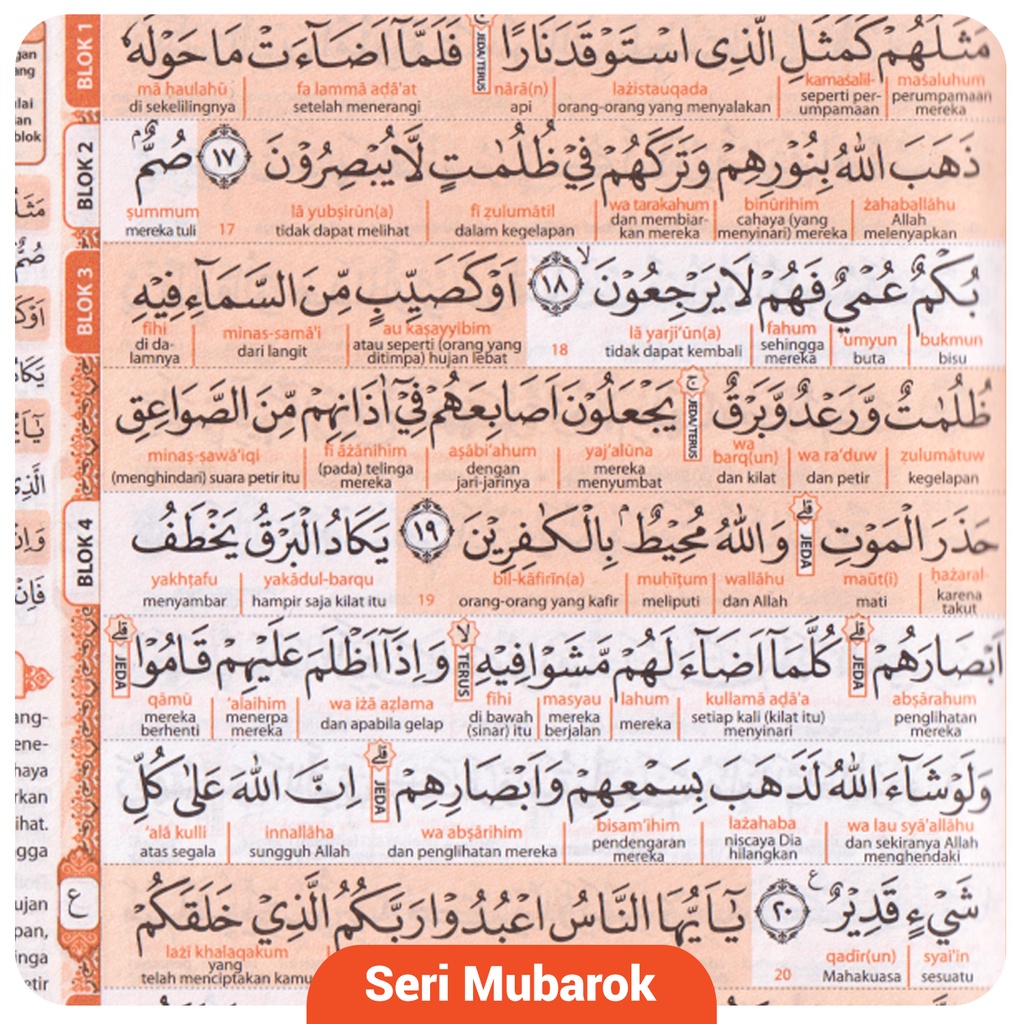 BLOK 1
مَثَلُهُمْ كَمَثَلِ الَّذِى اسْتَوْقَدَ نَارًا ۚ JEDA/TERUS فَلَمَّآ اَضَاۤءَتْ مَا حَوْلَهٗ
maṡaluhum kamaṡalil- lażistauqada nārā(n) fa lammā aḍā'at mā ḥaulahū
perumpamaan mereka seperti per-umpamaan orang-orang yang menyalakan api setelah menerangi di sekelilingnya
BLOK 2
ذَهَبَ اللّٰهُ بِنُوْرِهِمْ وَتَرَكَهُمْ فِيْ ظُلُمٰتٍ لَّا يُبْصِرُوْنَ ١٧ صُمٌّ ۢ
żahaballāhu binūrihim wa tarakahum fī ẓulumātil lā yubṣirūn(a) 17 ṣummum
Allah melenyapkan cahaya (yang menyinari) mereka dan membiar-kan mereka dalam kegelapan tidak dapat melihat mereka tuli
BLOK 3
بُكْمٌ عُمْيٌ فَهُمْ لَا يَرْجِعُوْنَ ۙ ١٨ اَوْ كَصَيِّبٍ مِّنَ السَّمَاۤءِ فِيْهِ
bukmun 'umyun fahum lā yarji'ūn(a) 18 au kaṣayyibim minas-samā'i fīhi
bisu buta sehingga mereka tidak dapat kembali atau seperti (orang yang ditimpa) hujan lebat dari langit di da-lamnya
ظُلُمٰتٌ وَّرَعْدٌ وَّبَرْقٌ ۚ JEDA/TERUS يَجْعَلُوْنَ اَصَابِعَهُمْ فِيْٓ اٰذَانِهِمْ مِّنَ الصَّوَاعِقِ
ẓulumātuw wa ra'duw wa barq(un) yaj'alūna aṣābi'ahum fī āżānihim minaṣ-ṣawā'iqi
kegelapan dan petir dan kilat mereka menyumbat dengan jari-jarinya (pada) telinga mereka (menghindari) suara petir itu
BLOK 4
حَذَرَ الْمَوْتِ ۗ JEDA وَاللّٰهُ مُحِيْطٌ ۢ بِالْكٰفِرِيْنَ ١٩ يَكَادُ الْبَرْقُ يَخْطَفُ
ḥażaral- maūt(i) wallāhu muḥīṭum bil-kāfirīn(a) 19 yakādul-barqu yakhṭafu
karena takut mati dan Allah meliputi orang-orang yang kafir hampir saja kilat itu menyambar
اَبْصَارَهُمْ ۗ JEDA كُلَّمَآ اَضَاۤءَ لَهُمْ مَّشَوْا فِيْهِ ۙ TERUS وَاِذَآ اَظْلَمَ عَلَيْهِمْ قَامُوْا ۗ JEDA
abṣārahum kullamā aḍā'a lahum masyau fīhi wa iżā aẓlama 'alaihim qāmū
penglihatan mereka setiap kali (kilat itu) menyinari mereka mereka berjalan di bawah (sinar) itu dan apabila gelap menerpa mereka mereka berhenti
وَلَوْ شَاۤءَ اللّٰهُ لَذَهَبَ بِسَمْعِهِمْ وَاَبْصَارِهِمْ ۗ JEDA اِنَّ اللّٰهَ عَلٰى كُلِّ
wa lau syā'allāhu lażahaba bisam'ihim wa abṣārihim innallāha 'alā kulli
dan sekiranya Allah menghendaki niscaya Dia hilangkan pendengaran mereka dan penglihatan mereka sungguh Allah atas segala
شَيْءٍ قَدِيْرٌ ࣖ ٢٠ يٰٓاَيُّهَا النَّاسُ اعْبُدُوْا رَبَّكُمُ الَّذِيْ خَلَقَكُمْ
syai'in qadīr(un) 20 lażī khalaqakum
sesuatu Mahakuasa yang telah menciptakan kamu
ع
Seri Mubarok